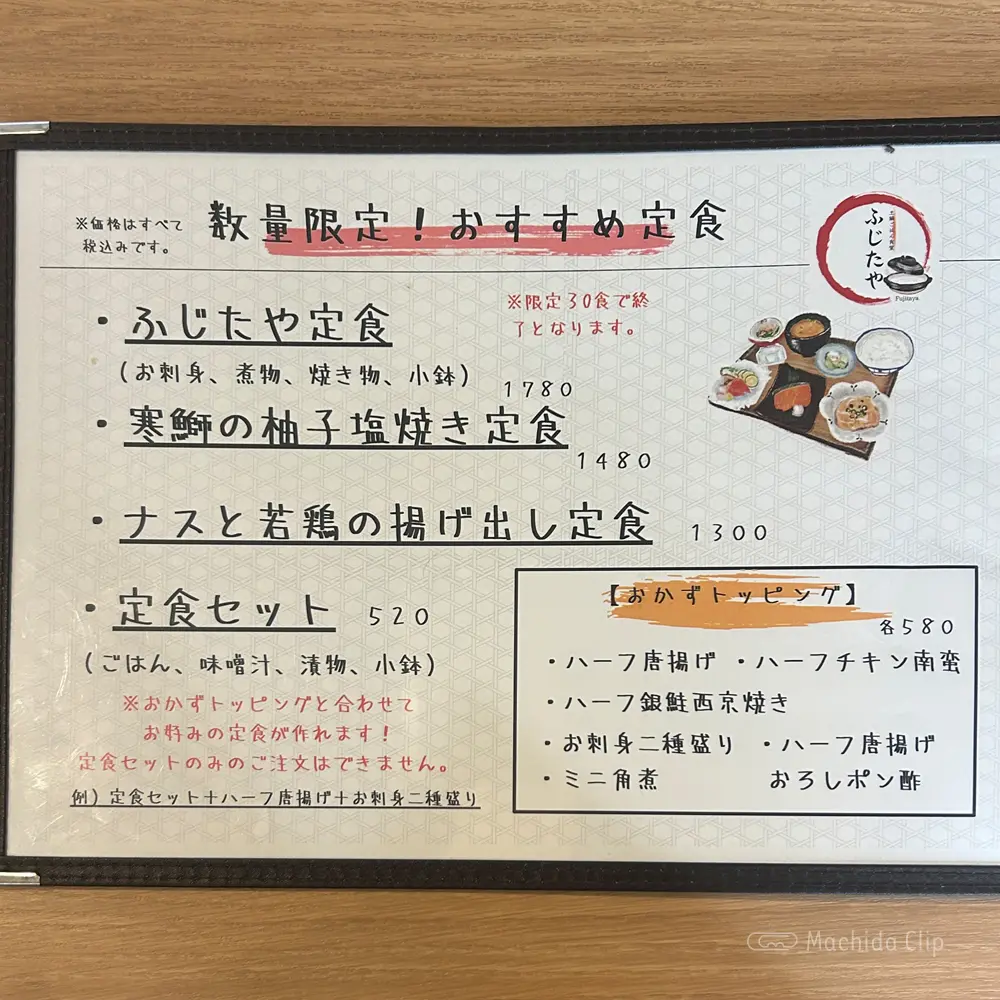 ※価格はすべて
税込みです。
数量限定！おすすめ定食
ふじたや
Fujitaya
※限定30食で終
了となります。
・ふじたや定食
(お刺身、煮物、焼き物、小鉢)
1780
・寒鰤の柚子塩焼き定食
1480
・ナスと若鶏の揚げ出し定食 1300
・定食セット 520
(ごはん、味噌汁、漬物、小鉢)
※おかずトッピングと合わせて
お好みの定食が作れます！
定食セットのみのご注文はできません。
例)定食セット+ハーフ唐揚げ+お刺身二種盛り
【おかずトッピング】
各580
・ハーフ唐揚げ ・ハーフチキン南蛮
・ハーフ銀鮭西京焼き
・お刺身二種盛り ・ハーフ唐揚げ
・ミニ角煮 おろしポン酢
Machida Clip